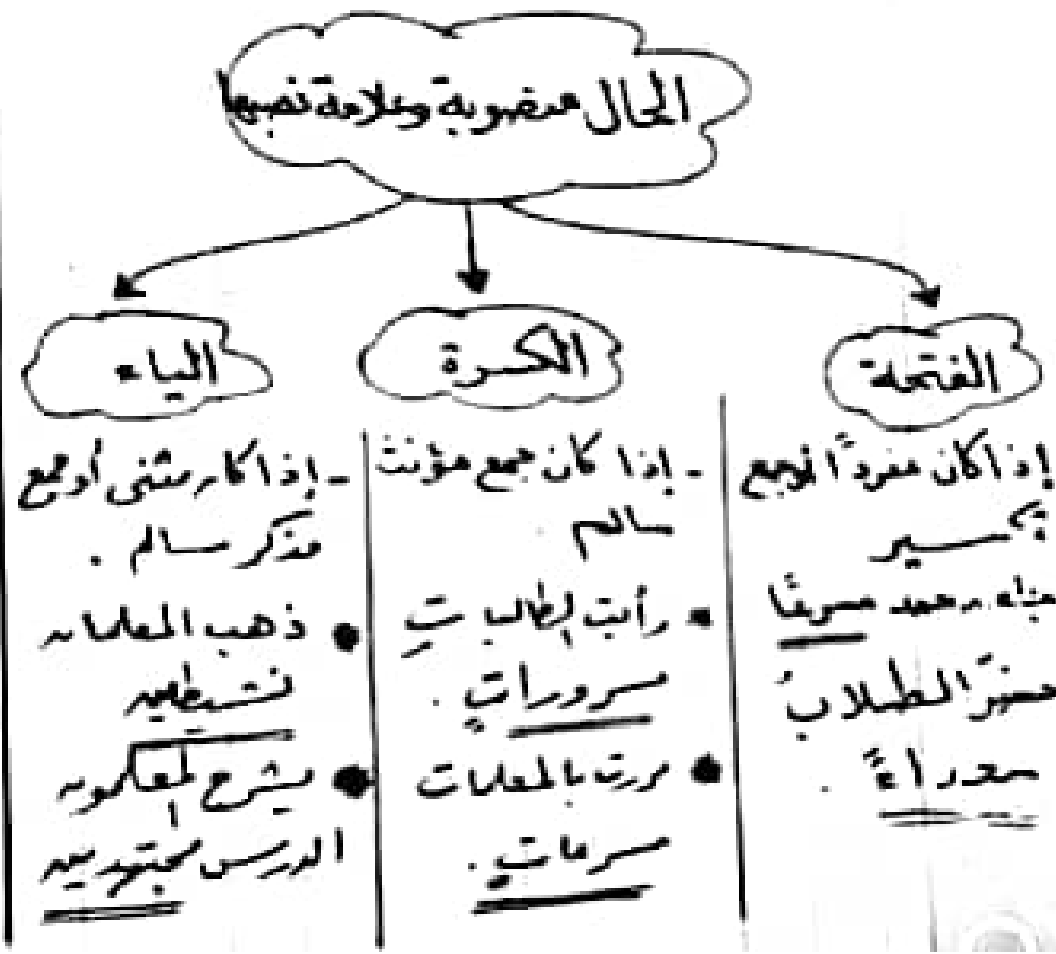 الحال منصوبة وعلامة نصبها
الفتحة
إذا كان مفرداً أو جمع
تكسير
محمد مسرعًا
الطلابُ
الكسرة
- إذا كان جمع مؤنث
سالم
• رأيت الطالباتِ
مسروراتٍ .
• مررت بالمعلمات
مسرعاتٍ .
الياء
- إذا كان مثنى أو جمع
مذكر سالم .
• ذهب المعلمان
نشيطين
• يشرح المعلمون
الدرس مجتهدين